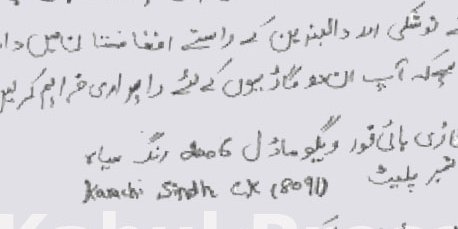 نوشکی اور دالبندین کے راستے افغانستان میں دا
آپ ان دو گاڑیوں کے لئے راہداری فراہم کریں
گاڑی ہائی فور ویگو ماڈل 2006 رنگ سیاہ
نمبر پلیٹ Karachi Sindh CK (8091)